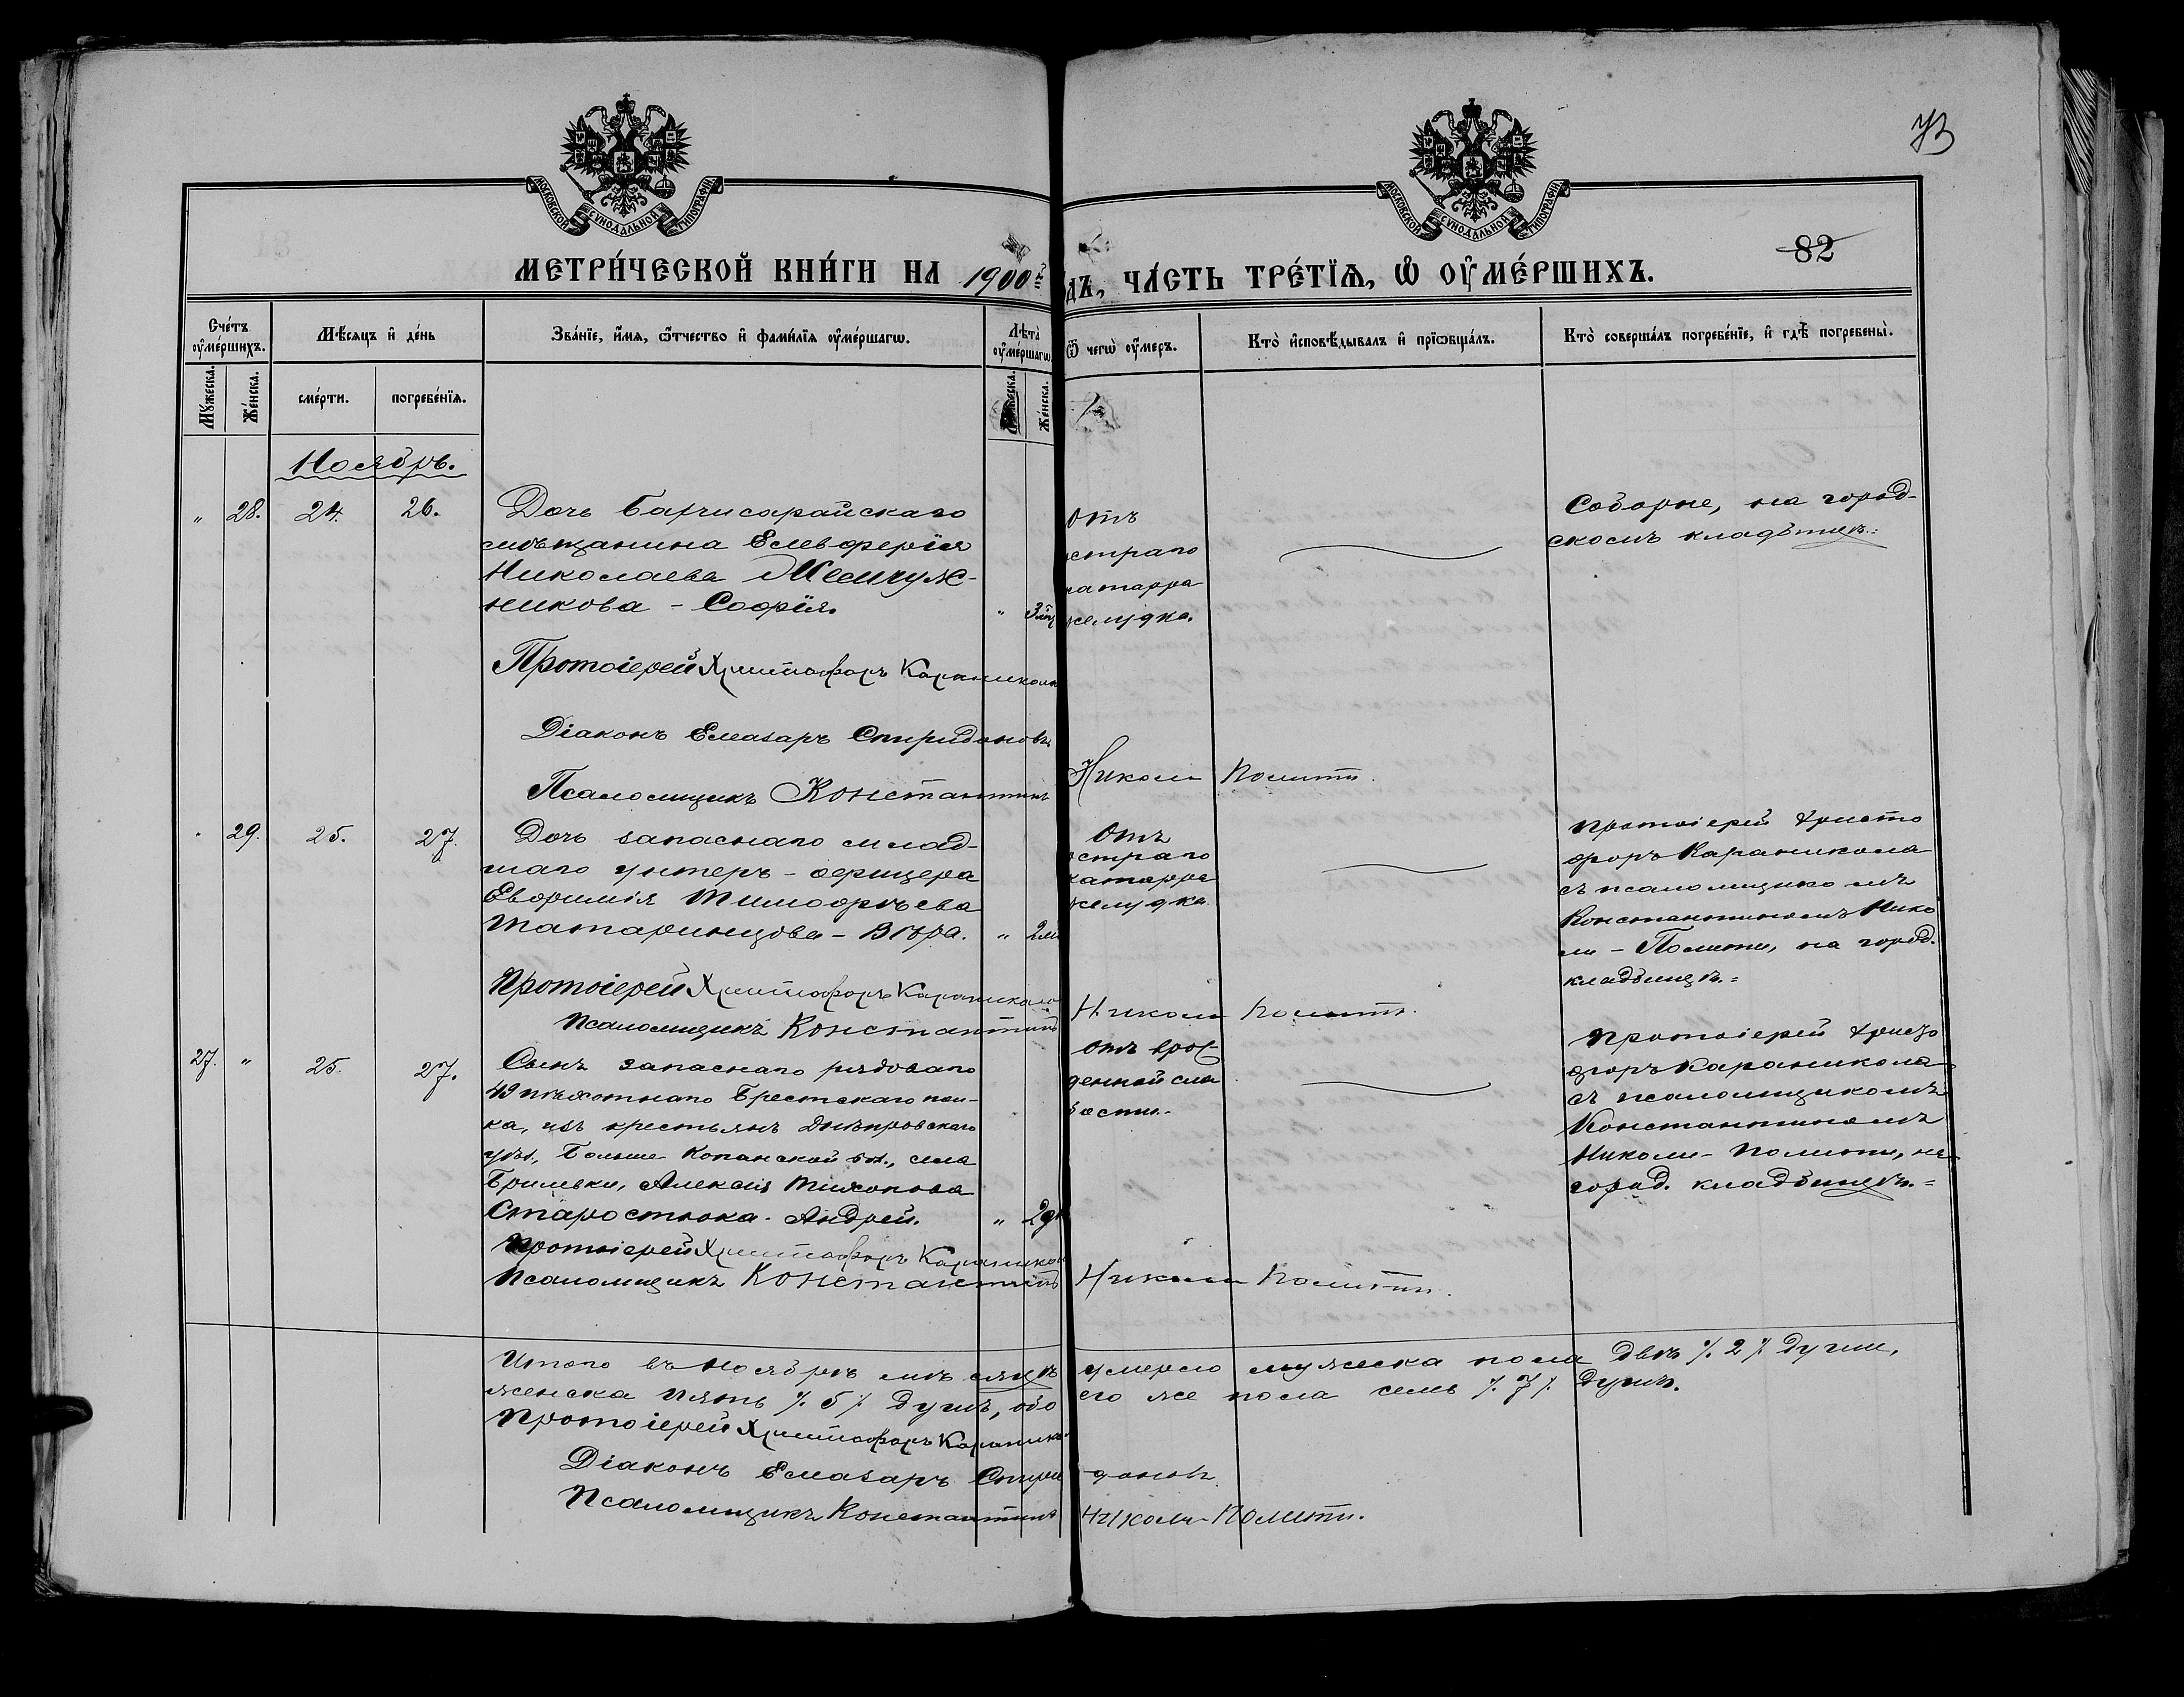 73
МОСКОВСКОЙ СѴНОДАЛЬНОЙ ТИПОГРАФІИ
МОСКОВСКОЙ СѴНОДАЛЬНОЙ ТИПОГРАФІИ
82
МЕТРИ́ЧЕСКОЙ КНИ́ГИ НА 1900й
дъ, ЧА́СТЬ ТРЕ́ТЇѦ, Ѿ ОУ҆МЕ́РШИХЪ.
Сче́тъ оу҆ме́ршихъ.
Мѣ́сѧцъ и҆ де́нь
Зва́нїе, и҆́мѧ, ѻ҆́тчество и҆ фами́лїѧ оу҆ме́ршагѡ.
Лѣта̀ оу҆ме́ршагѡ
Ѿ чегѡ̀ оу҆́меръ.
Кто̀ и҆сповѣ́дывалъ и҆ прїѡбща́лъ.
Кто̀ соверша́лъ погребе́нїе, и҆ гдѣ̀ погребены̀.
Мꙋ́жеска.
Же́нска.
сме́рти.
погребе́нїѧ.
Мꙋ́жеска.
Же́нска.
Ноябрь.
" 28. 24. 26. Дочь Бахчисарайскаго
мѣщанина Елевферія
Николаева Жемчуж-
никова - Софія. " 3 мѣ
Отъ
остраго
катарра
желудка.
Соборне, на город-
скомъ кладбищѣ.=
Протоіерей Христофоръ Караникола
Діаконъ Елеазаръ Спиридоновъ
Псаломщикъ Константинъ Николи Полити.
" 29. 25. 27. Дочь запаснаго млад-
шаго унтеръ-офицера
Евфимія Тимофѣева
Татаринцова - Вѣра. " 2 мѣ
Отъ
остраго
катарра
желудка.
Протоіерей Христо
форъ Караникола
съ псаломщикомъ
Константиномъ Нико
ли - Полити, на город.
кладбищѣ.=
Протоіерей Христофоръ Караникола
Псаломщикъ Константинъ Николи Полити.
27. " 25. 27. Сынъ запаснаго рядоваго
49 пѣхотнаго Брестскаго пол-
ка, изъ крестьянъ Днѣпровскаго
уѣз., Больше Копанской вол., села
Брилевки, Алексія Тихонова
Старостюка - Андрей. " 2 дн
Отъ врож-
денной сла
бости.
Протоіерей Христо
форъ Караникола
съ псаломщикомъ
Константиномъ
Николи- Полити, на
город. кладбищѣ.=
Протоіерей Христофоръ Караникола
Псаломщикъ Константинъ Николи Полити.
Итого въ Ноябрѣ мѣсяцѣ умерло мужеска пола двѣ /. 2 /. души,
женска пять /. 5 /. душъ, обо его же пола семь /. 7 /. душъ.
Протоіерей Христофоръ Караникола
Діаконъ Елеазаръ Спиридоновъ
Псаломщикъ Константинъ Николи-Полити.